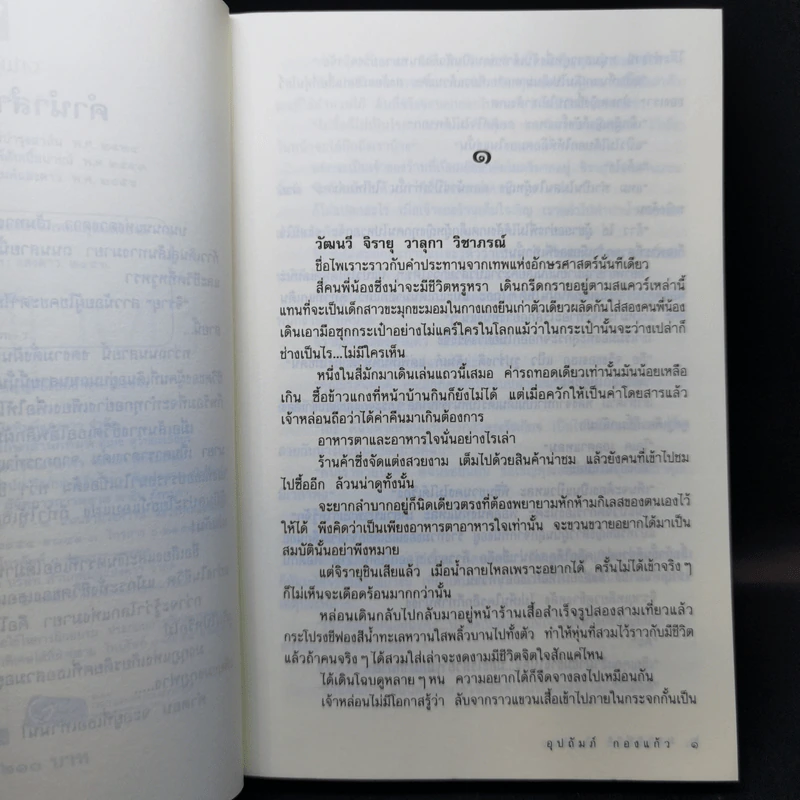 ๑
วัฒนวี จิรายุ วาลุกา วิชาภรณ์
ชื่อไพเราะราวกับคำประทานจากเทพแห่งอักษรศาสตร์นั่นทีเดียว
สี่คนพี่น้องซึ่งน่าจะมีชีวิตหรูหรา เดินกรีดกรายอยู่ตามสแควร์เหล่านี้
แทนที่จะเป็นเด็กสาวขะมุกขะมอมในกางเกงยีนเก่าตัวเดียวผลัดกันใส่สองคนพี่น้อง
เดินเอามือซุกกระเป๋าอย่างไม่แคร์ใครในโลกแม้ว่าในกระเป๋านั้นจะว่างเปล่าก็
ช่างเป็นไร...ไม่มีใครเห็น
หนึ่งในสี่มักมาเดินเล่นแถวนี้เสมอ ค่ารถทอดเดียวเท่านั้นมันน้อยเหลือ
เกิน ซื้อข้าวแกงที่หน้าบ้านกินก็ยังไม่ได้ แต่เมื่อควักให้เป็นค่าโดยสารแล้ว
เจ้าหล่อนถือว่าได้ค่าคืนมาเกินต้องการ
อาหารตาและอาหารใจนั่นอย่างไรเล่า
ร้านค้าซึ่งจัดแต่งสวยงาม เต็มไปด้วยสินค้าน่าชม แล้วยังคนที่เข้าไปชม
ไปซื้ออีก ล้วนน่าดูทั้งนั้น
จะยากลำบากอยู่ก็นิดเดียวตรงที่ต้องพยายามหักห้ามกิเลสของตนเองไว้
ให้ได้ พึงคิดว่าเป็นเพียงอาหารตาอาหารใจเท่านั้น จะขวนขวายอยากได้มาเป็น
สมบัตินั้นอย่าพึงหมาย
แต่จิรายุชินเสียแล้ว เมื่อน้ำลายไหลเพราะอยากได้ ครั้นไม่ได้เข้าจริง ๆ
ก็ไม่เห็นจะเดือดร้อนมากกว่านั้น
หล่อนเดินกลับไปกลับมาอยู่หน้าร้านเสื้อสำเร็จรูปสองสามเที่ยวแล้ว
กระโปรงชีฟองสีน้ำทะเลหวานใสพลิ้วบานไปทั้งตัว ทำให้หุ่นที่สวมไว้ราวกับมีชีวิต
แล้วถ้าคนจริง ๆ ได้สวมใส่เล่าจะงดงามมีชีวิตจิตใจสักแค่ไหน
ได้เดินโฉบดูหลาย ๆ หน ความอยากได้ก็จืดจางลงไปเหมือนกัน
เจ้าหล่อนไม่มีโอกาสรู้ว่า ลับจากราวแขวนเสื้อเข้าไปภายในกระจกกั้นเป็น
อุปถัมภ์ กองแก้ว ๑